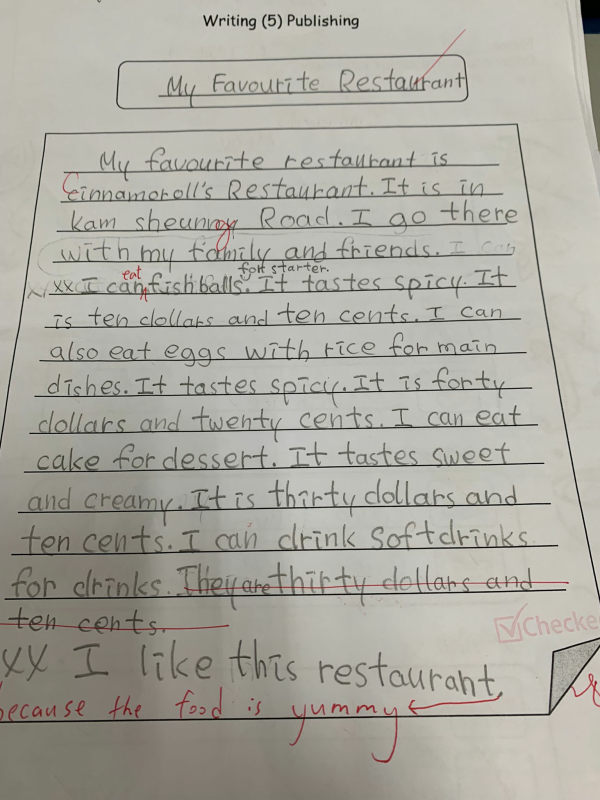 Writing (5) Publishing
My Favourite Restaurant
My favourite restaurant is
Cinnamoroll's Restaurant. It is in
kam sheung Road. I go there
with my family and friends. I can
eat for starter.
xx I can fish balls. It tastes spicy. It
is ten dollars and ten cents. I can
also eat eggs with rice for main
dishes. It tastes spicy. It is forty
dollars and twenty cents. I can eat
cake for dessert. It tastes sweet
and creamy. It is thirty dollars and
ten cents. I can drink soft drinks
for drinks. They are thirty dollars and
ten cents.
Checke
xx I like this restaurant.
because the food is yummy